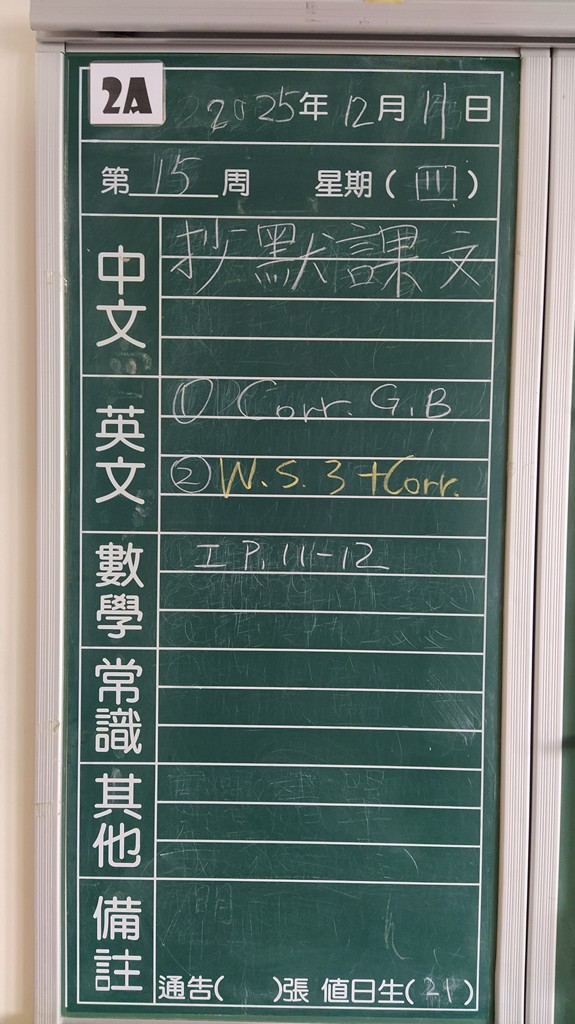 2A
2025年12月11日
第15周 星期(四)
中文
抄默課文
英文
① Corr. G.B
② W.S. 3 +Corr.
數學
I P. 11-12
常識
其他
備註
通告( )張 值日生(21)